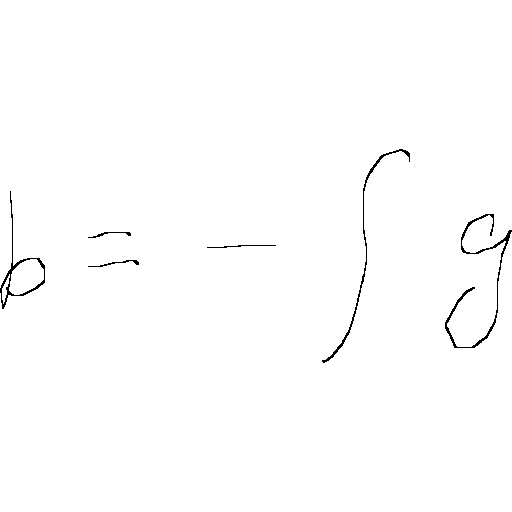 b = - ∫ g